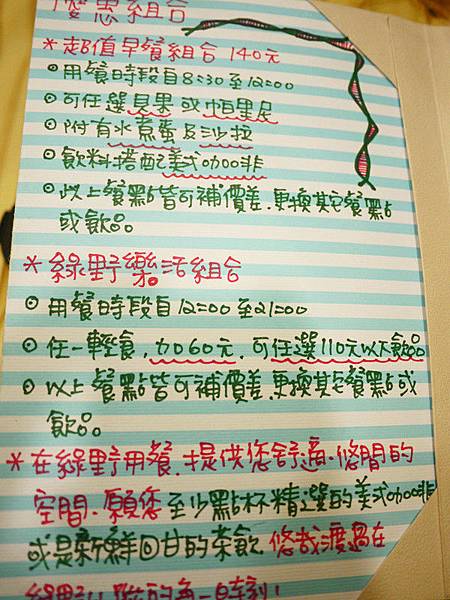 優惠組合
*超值早餐組合 140元
⊙用餐時段自8:30至12:00
⊙可任選貝果或帕里尼
⊙附有水煮蛋及沙拉
⊙飲料搭配美式咖啡
⊙以上餐點皆可補價差.更換其它餐點
或飲品。
*綠野樂活組合
⊙用餐時段自12:00至21:00
⊙任一輕食,加60元,可任選110元以下飲品
⊙以上餐點皆可補價差.更換其它餐點或
飲品。
*在綠野用餐.提供您舒適.悠閒的
空間.願您至少點杯精選的美式咖啡
或是新鮮回甘的茶飲 悠哉渡過在
綠野仙蹤的每一日時刻!